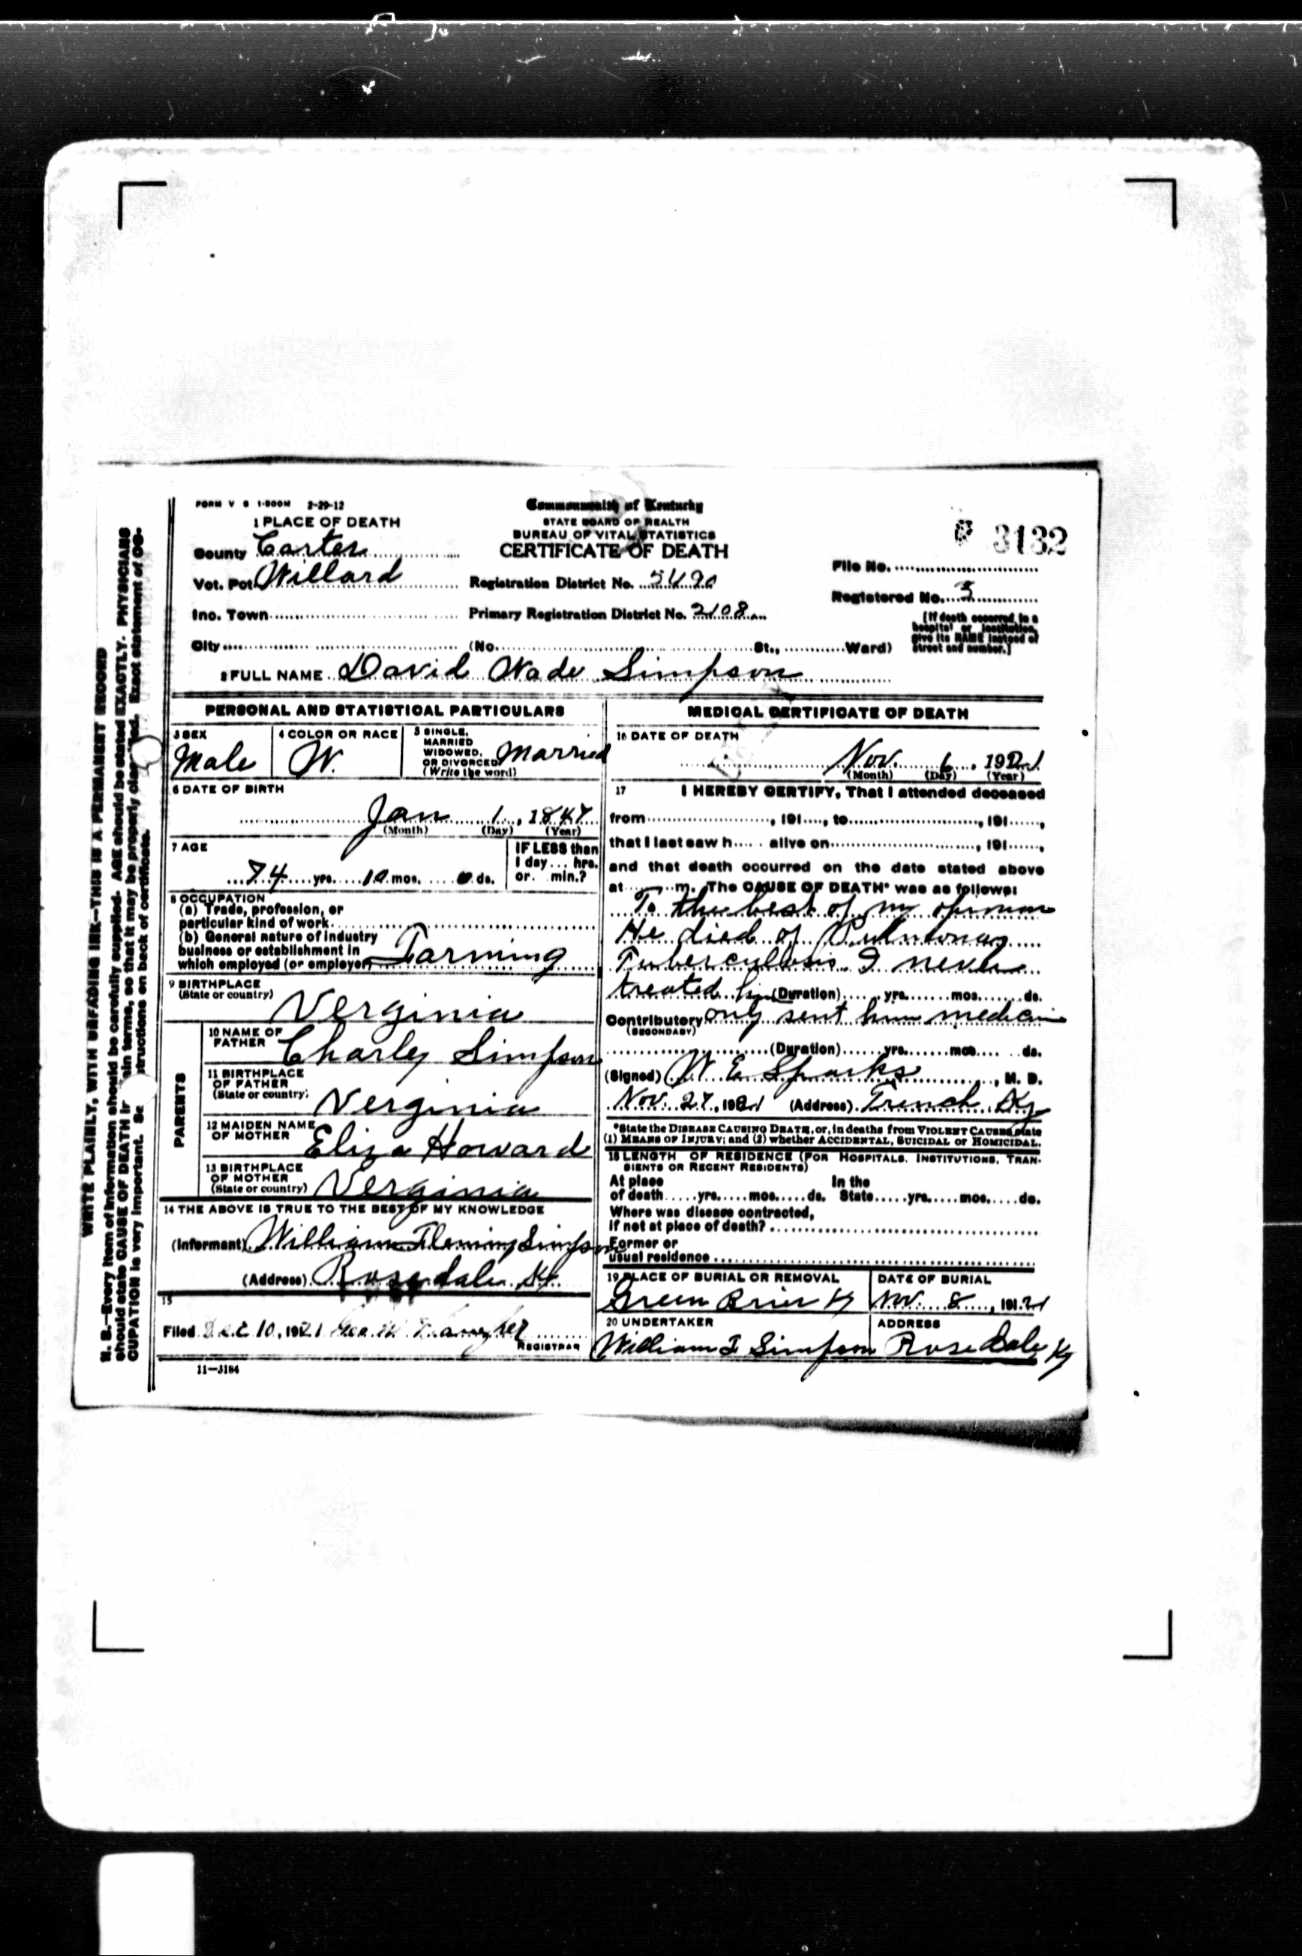 FORM V S 1-500M 2-29-12
Commonwealth of Kentucky
STATE BOARD OF HEALTH
BUREAU OF VITAL STATISTICS
CERTIFICATE OF DEATH
3132
1 PLACE OF DEATH
County Carter
Vot. Pct Willard
Inc. Town
City (No. St., Ward)
Registration District No. 5490
Primary Registration District No. 2108
File No.
Registered No. 3
[If death occurred in a
hospital or institution,
give its NAME instead of
street and number.]
2 FULL NAME David Wade Simpson
PERSONAL AND STATISTICAL PARTICULARS
3 SEX
Male
4 COLOR OR RACE
W.
5 SINGLE,
MARRIED
WIDOWED,
OR DIVORCED
(Write the word)
Married
6 DATE OF BIRTH
Jan 1, 1847
(Month) (Day) (Year)
7 AGE
74 yrs. 10 mos. 0 ds.
IF LESS than
1 day ... hrs.
or. min.?
8 OCCUPATION
(a) Trade, profession, or
particular kind of work
(b) General nature of industry
business or establishment in
which employed (or employer) Farming
9 BIRTHPLACE
(State or country)
Verginia
PARENTS
10 NAME OF
FATHER
Charley Simpson
11 BIRTHPLACE
OF FATHER
(State or country)
Verginia
12 MAIDEN NAME
OF MOTHER
Eliza Howard
13 BIRTHPLACE
OF MOTHER
(State or country)
Verginia
14 THE ABOVE IS TRUE TO THE BEST OF MY KNOWLEDGE
(Informant) William Fleming Simpson
(Address) Rosedale Ky.
15
Filed Dec 10, 1921 Geo. W.
REGISTRAR
11—3184
MEDICAL CERTIFICATE OF DEATH
16 DATE OF DEATH
Nov. 6, 1921
(Month) (Day) (Year)
17 I HEREBY CERTIFY, That I attended deceased
from , 191 , to , 191 ,
that I last saw h alive on , 191 ,
and that death occurred on the date stated above
at m. The CAUSE OF DEATH* was as follows:
To the best of my opinion
He died of Pulmonay
Tuberculosis I never
treated him (Duration) yrs. mos. ds.
Contributory only sent him medicin
(SECONDARY)
(Duration) yrs. mos. ds.
(Signed) W E Sparks, M. D.
Nov. 27, 1921 (Address) French Ky
*State the DISEASE CAUSING DEATH, or, in deaths from VIOLENT CAUSES state
(1) MEANS OF INJURY; and (2) whether ACCIDENTAL, SUICIDAL or HOMICIDAL.
18 LENGTH OF RESIDENCE (FOR HOSPITALS, INSTITUTIONS, TRAN-
SIENTS OR RECENT RESIDENTS)
At place In the
of death yrs. mos. ds. State yrs. mos. ds.
Where was disease contracted,
if not at place of death?
Former or
usual residence
19 PLACE OF BURIAL OR REMOVAL
Green Brier Ky
DATE OF BURIAL
Nov. 8, 1921
20 UNDERTAKER
William F Simpson
ADDRESS
Rosedale Ky
WRITE PLAINLY, WITH UNFADING INK—THIS IS A PERMANENT RECORD
N. B.—Every item of information should be carefully supplied. AGE should be stated EXACTLY. PHYSICIANS
should state CAUSE OF DEATH in plain terms, so that it may be properly classified. Exact statement of OC-
CUPATION is very important. See instructions on back of certificate.